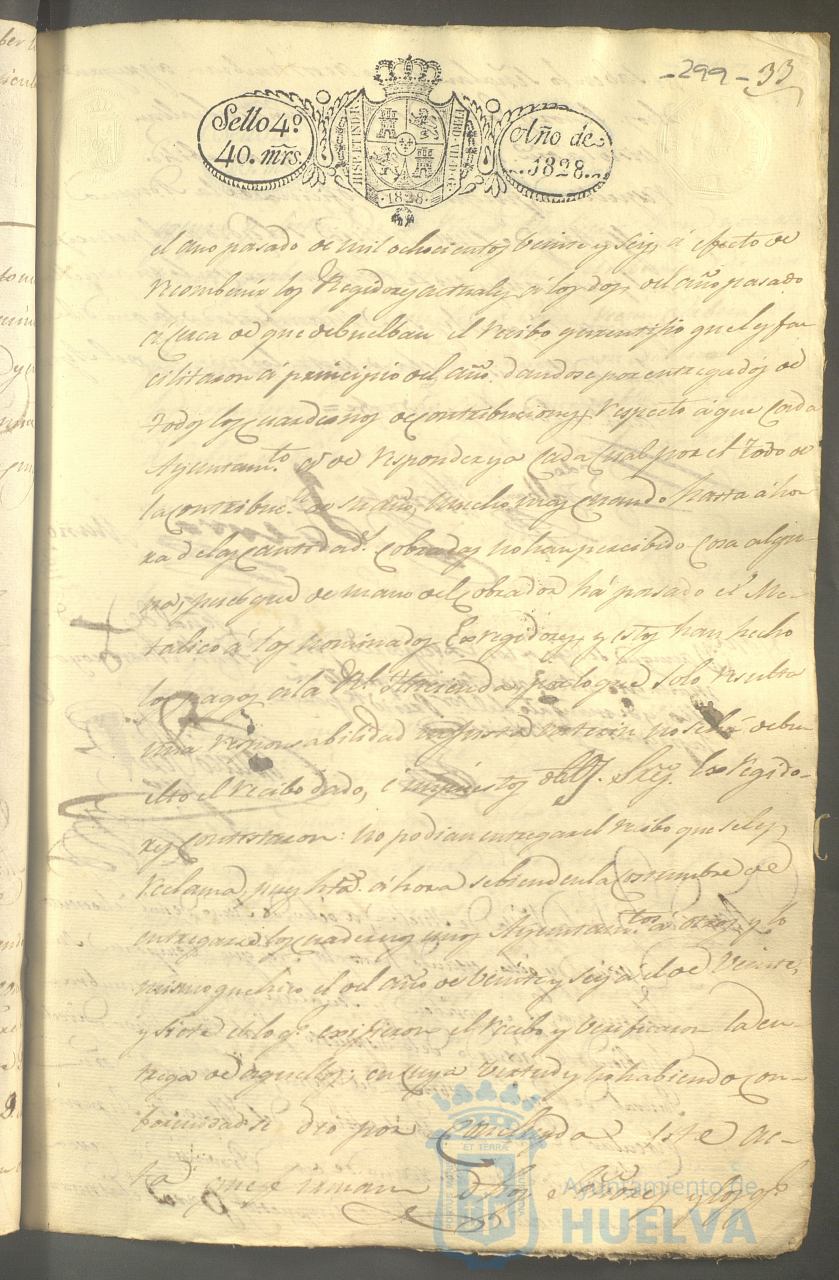 -299- 33
Sello 4º
40. mrs.
HISP. ET IND. R
1828
Año de
1828.
el año pasado de mil ochocientos veinte y seis, á efecto de
recombenir los Regidores actuales á los dos del año pasado
á cerca de que debuelban el recibo que les fa-
cilitaron á principio del año, dandose por entregados de
todos los cuadernos de contribuciones, respecto á que cada
Ayuntamto. de responder ya cada cual por el todo de
la contribucn. de su año, mucho mas cuando hasta áho-
ra de las cantidads. cobradas no han percibido cosa algu-
na, pues que de mano del Cobrador há pasado el Me-
talico á los nominados Exregidores, y estos han hecho
los pagos en la Rl. Hacienda, por lo que solo resulta
una responsabilidad interin no sea debu-
elto el recibo dado, é los Regido-
res contestaron: no podian entregar el recibo que se les
reclama, pues hta. áhora se biene en la costumbre de
entregarse los cuadernos unos Ayuntamtos. á otros, y lo
mismo que hizo el del año de veinte y seis al de veinte,
y siete de lo qe. exijieron el recibo y verificaron la en-
trega de aquellos: en cuya virtud y no habiendo con-
formidad se dio por concluyda este ac-
ta que firman dhos Señores y los qe.
ET TERRÆ
Ayuntamiento de
HUELVA